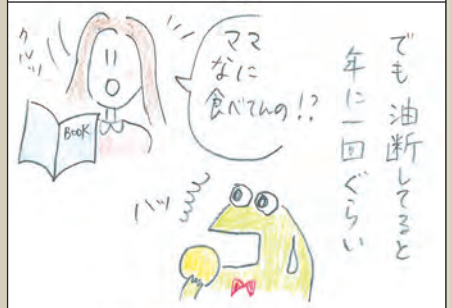 でも 油断してると
年に一回ぐらい
ママ
なに
食べてんの!?
クルッ
BOOK
ハッ